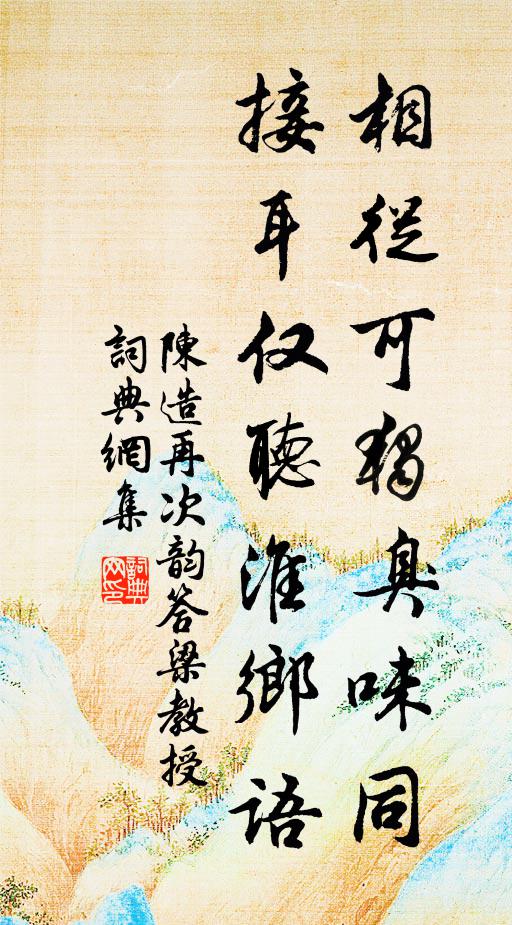 相從可獨臭味同
接耳仅聽淮鄉语
陳造再次韵答梁教授
詞典網集
詞典網印